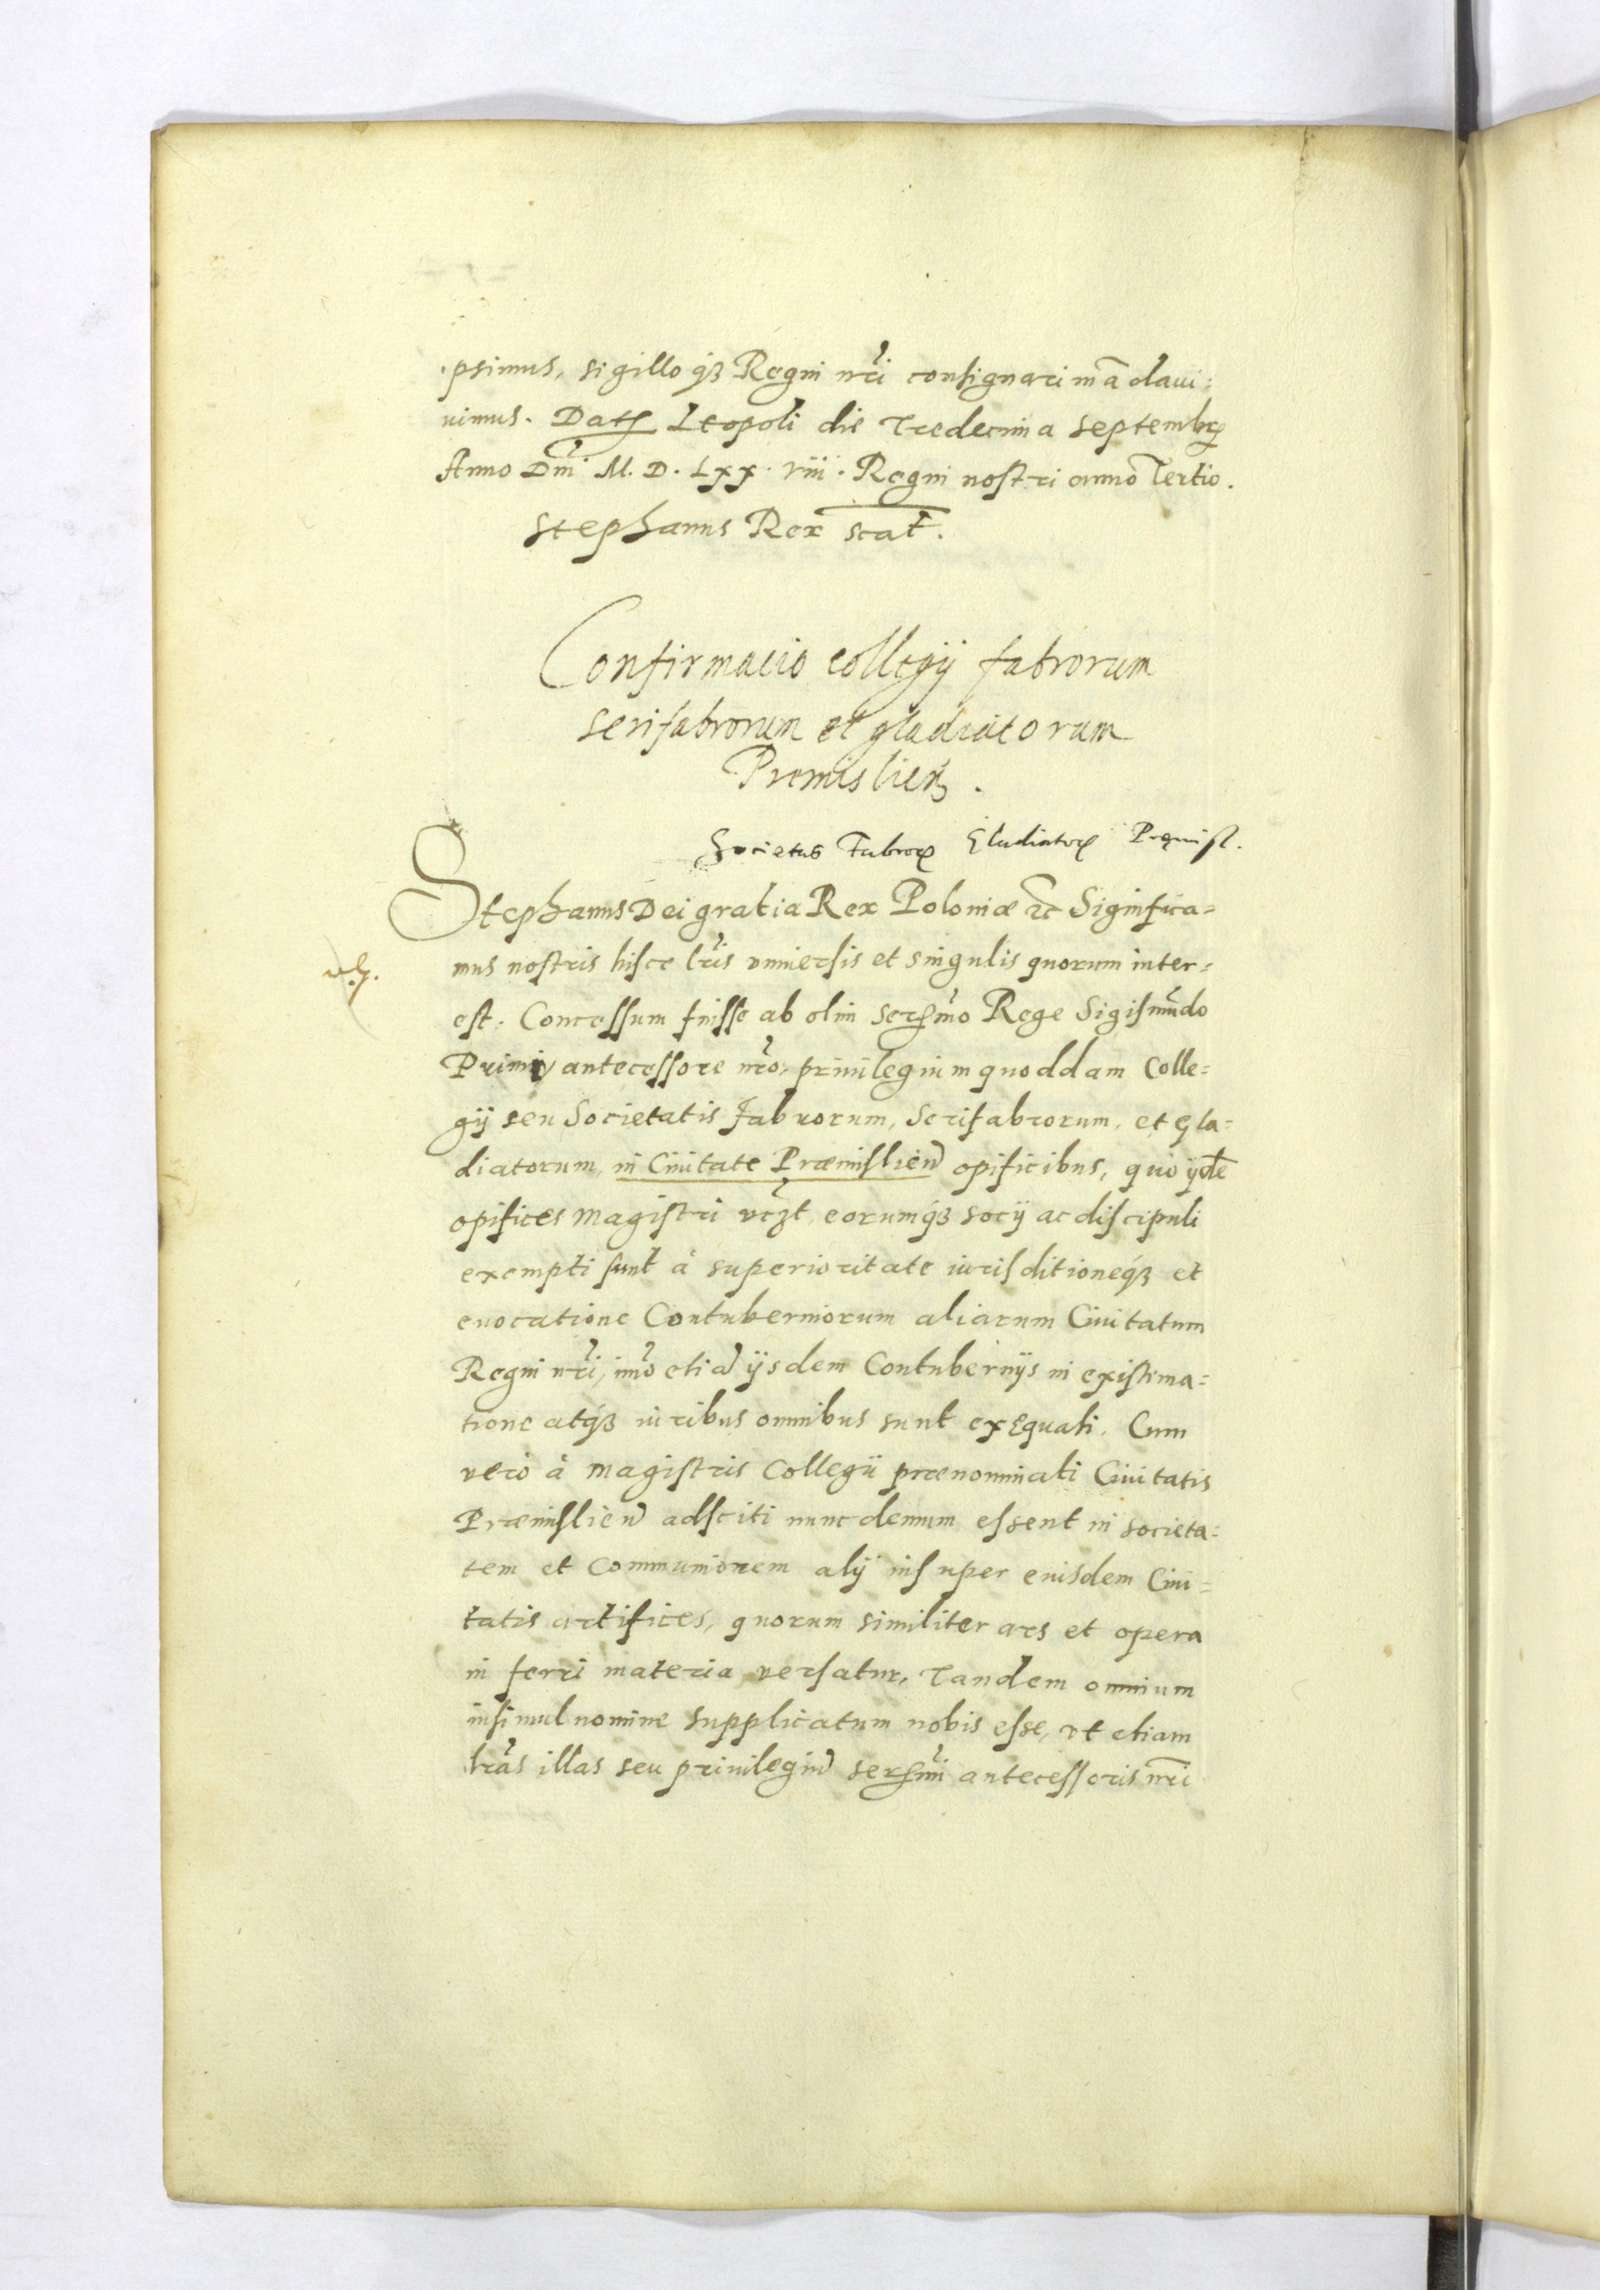 psimus, sigilloq₃ Regni nr̃i consignari mãdaui=
uimus. Datꝭ Leopoli die Tredecima Septembrꝭ
Anno Dnĩ M. D. Lxx. viii. Regni nostri anno Tertio.
Stephanus Rex scāt.
Confirmacio collegij fabrorum
serifabrorum et gladiatorum
Premislień.
Societas Fabrorꝭ Gladiatorꝭ Premisl.
Stephanus Dei gratia Rex Poloniæ ꝛc̃ Significa=
mus nostris hisce lr̃is vniuersis et singulis quorum inter=
est. Concessum fuisse ab olim serꝭmõ Rege Sigismũdo
Primi antecessore nr̃o, priuilegium quoddam Colle=
gij seu Societatis Fabrorum, Serifabrorum, et Gla=
diatorum, in Ciuitate Præmislień opificibus, quo ijdē
opifices Magistri vcꝫt eorumq₃ socij ac discipuli
exempti sunt à superioritate iurisditioneq₃ et
euocatione Contuberniorum aliarum Ciuitatum
Regni nr̃i, imo etiā ijsdem Contubernijs in existima=
tione atq₃ iuribus omnibus sunt exęquati. Cum
vero à Magistris Collegii prænominati Ciuitatis
Præmislień adsciti nunc demum essent in societa=
tem et Communionem alij insuper eiusdem Ciui=
tatis artifices, quorum similiter ars et opera
in ferri materia versatur, Tandem omnium
insimul nomine supplicatum nobis esse, vt etiam
lr̃as illas seu priuilegiũ serꝭmĩ antecessoris nr̃i